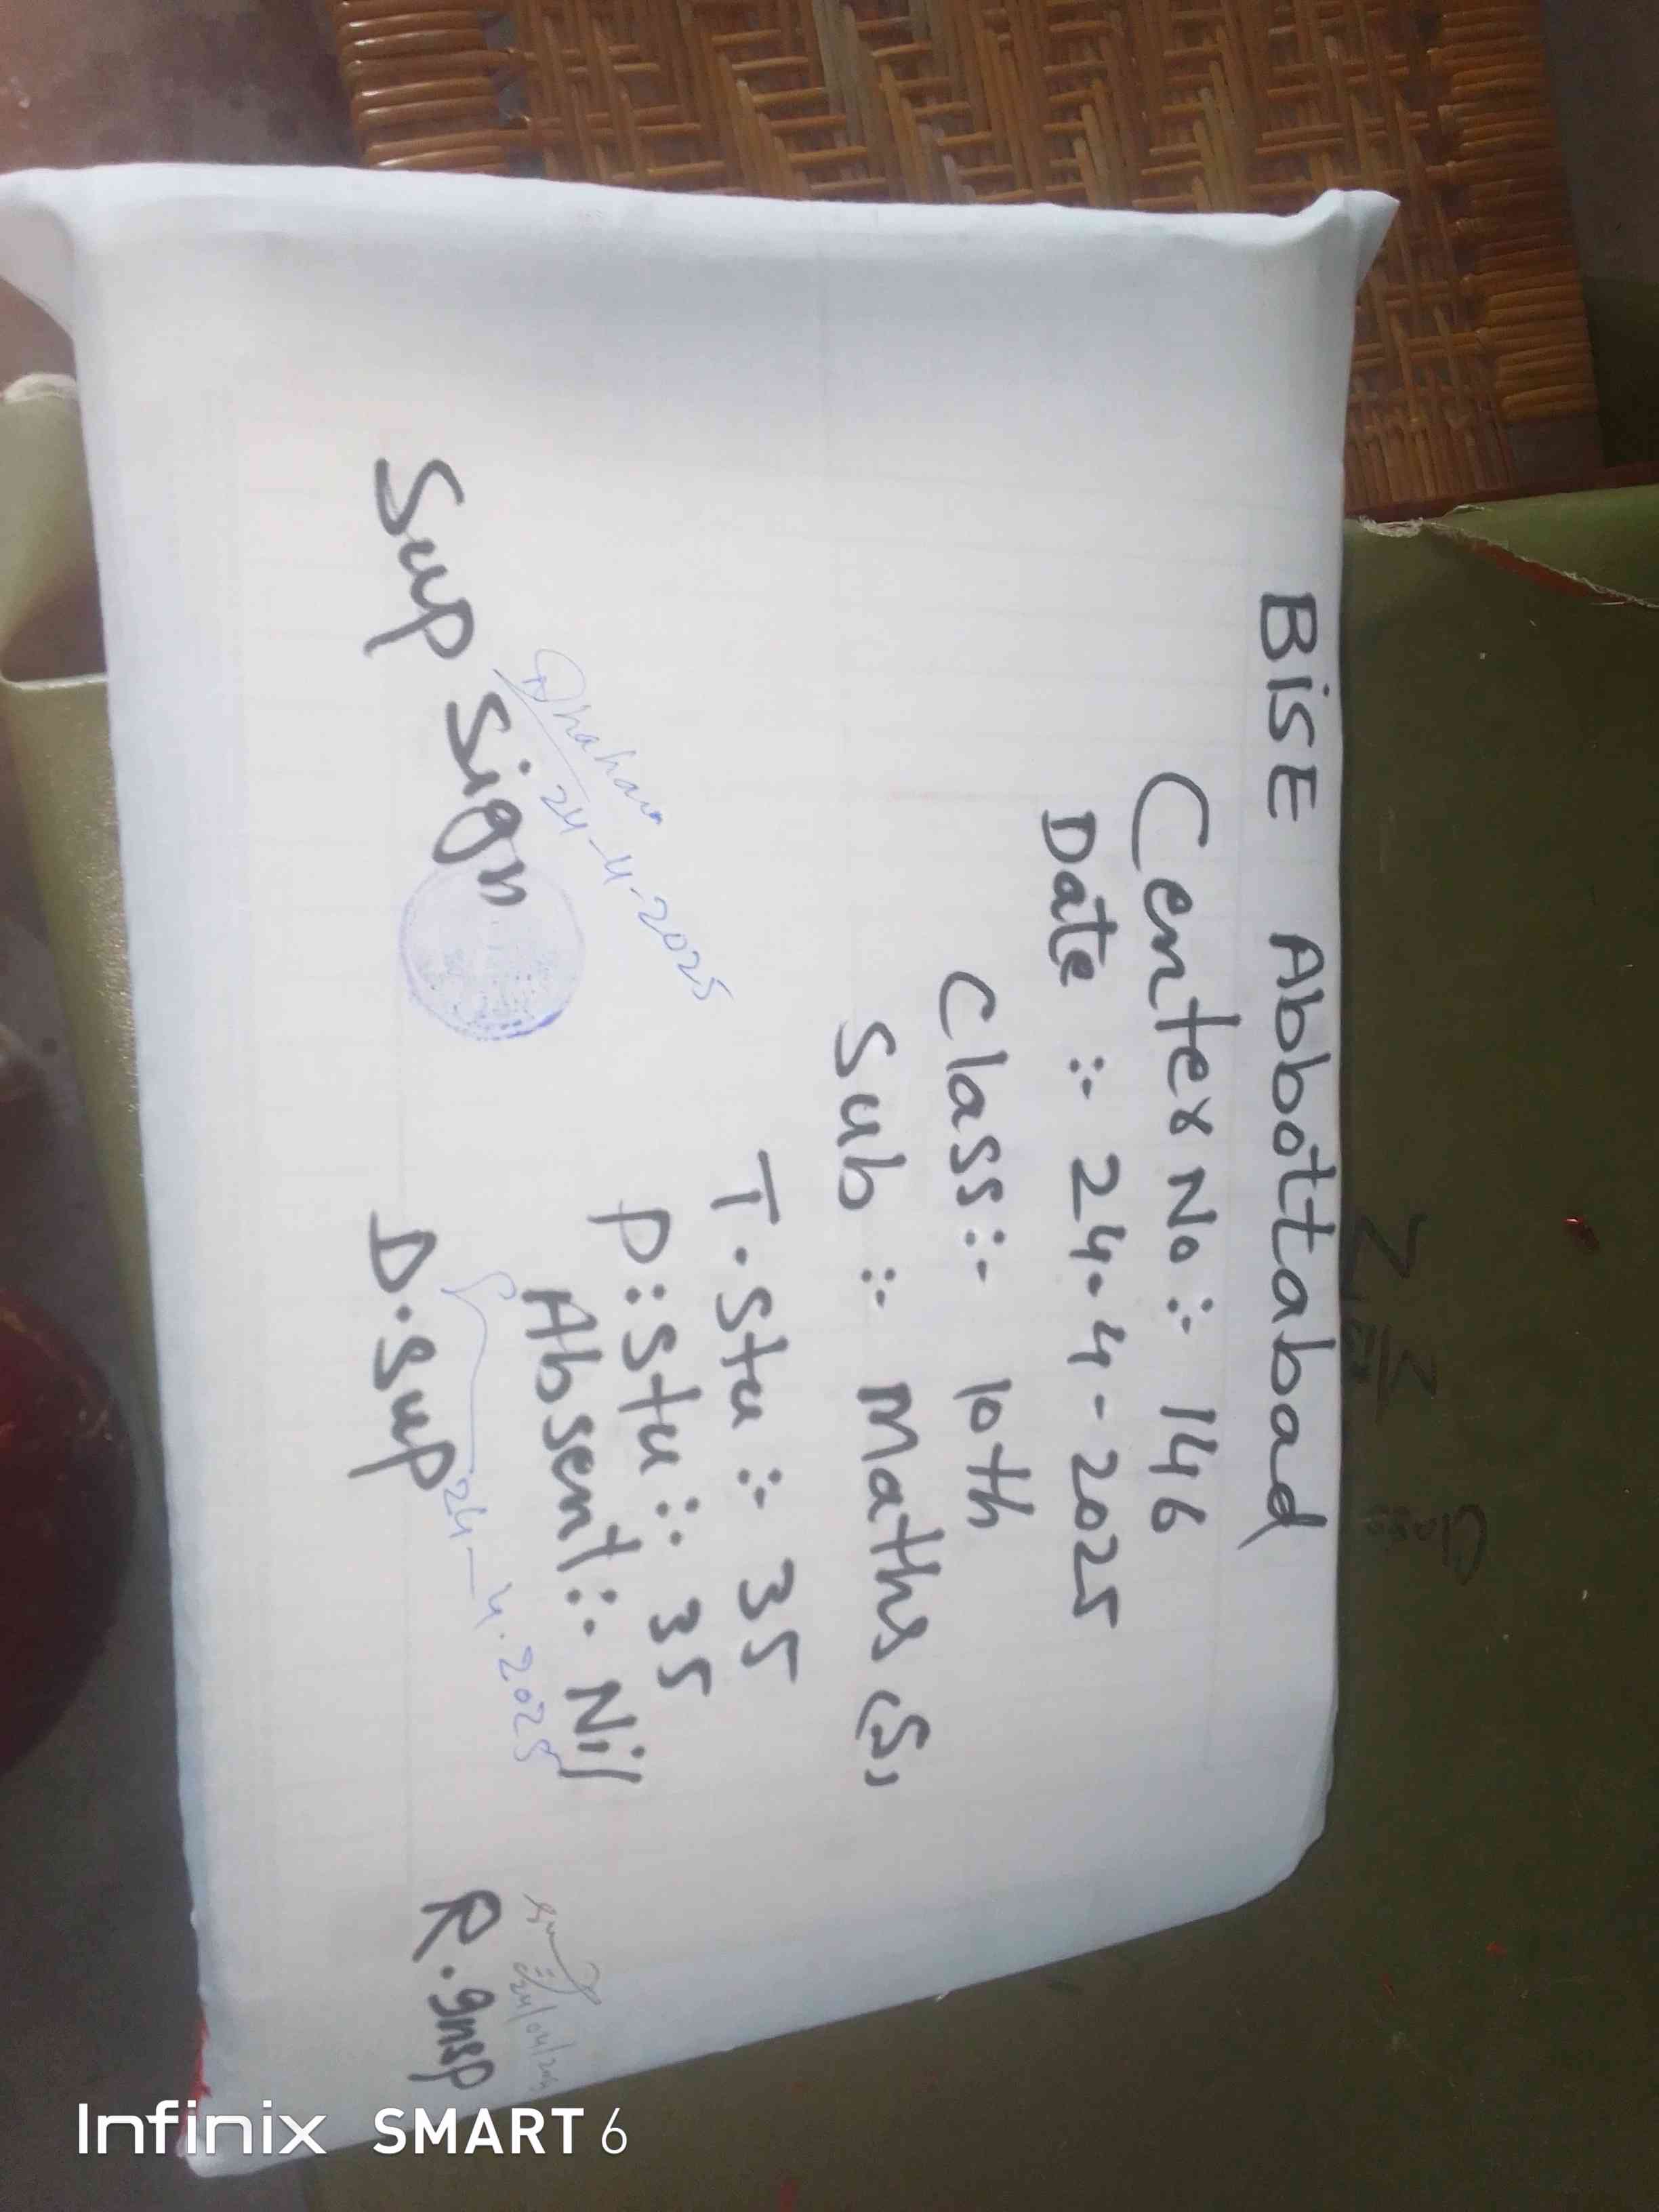 BISE Abbottabad
Center No :- 146
Date :- 24.4-2025
Class :- 10th
Sub :- Maths (S)
T.Stu :- 35
P:Stu :- 35
Absent :- Nil
24-4-2025
Sup Sign
24-4.2025
D.Sup
R.Insp
Class
Infinix SMART 6